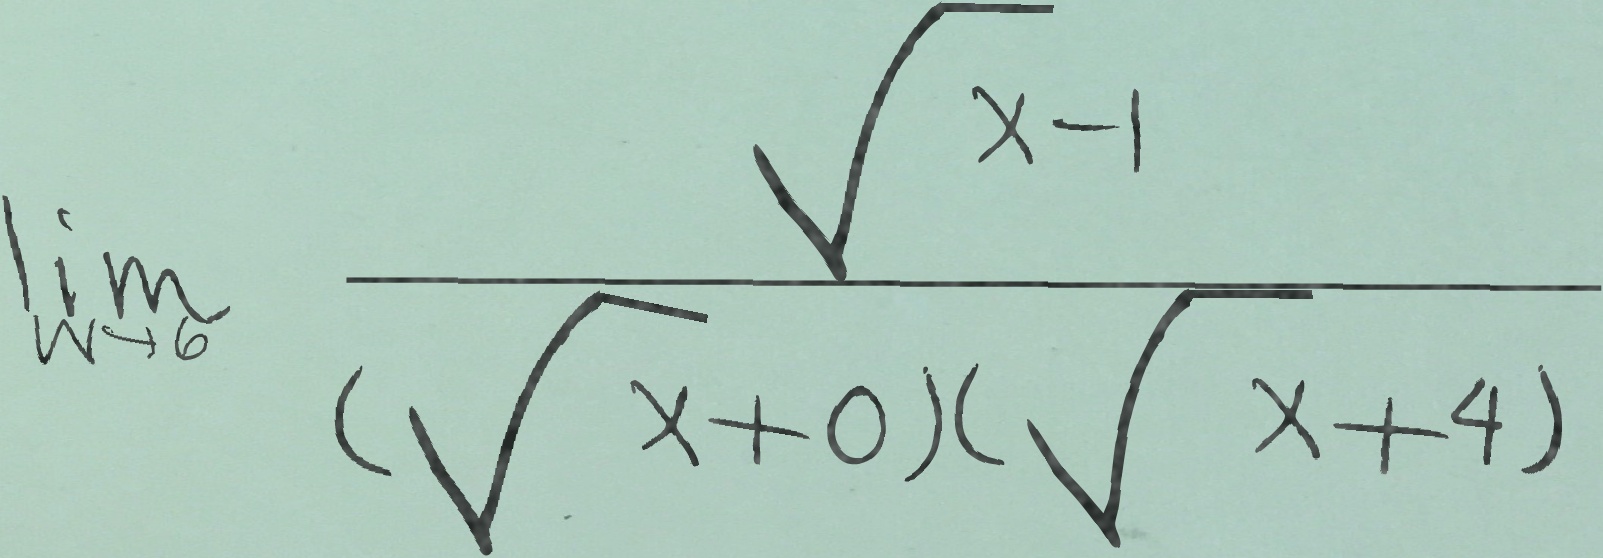 \lim_{w \to 6} \frac{\sqrt{x-1}}{(\sqrt{x+0})(\sqrt{x+4})}